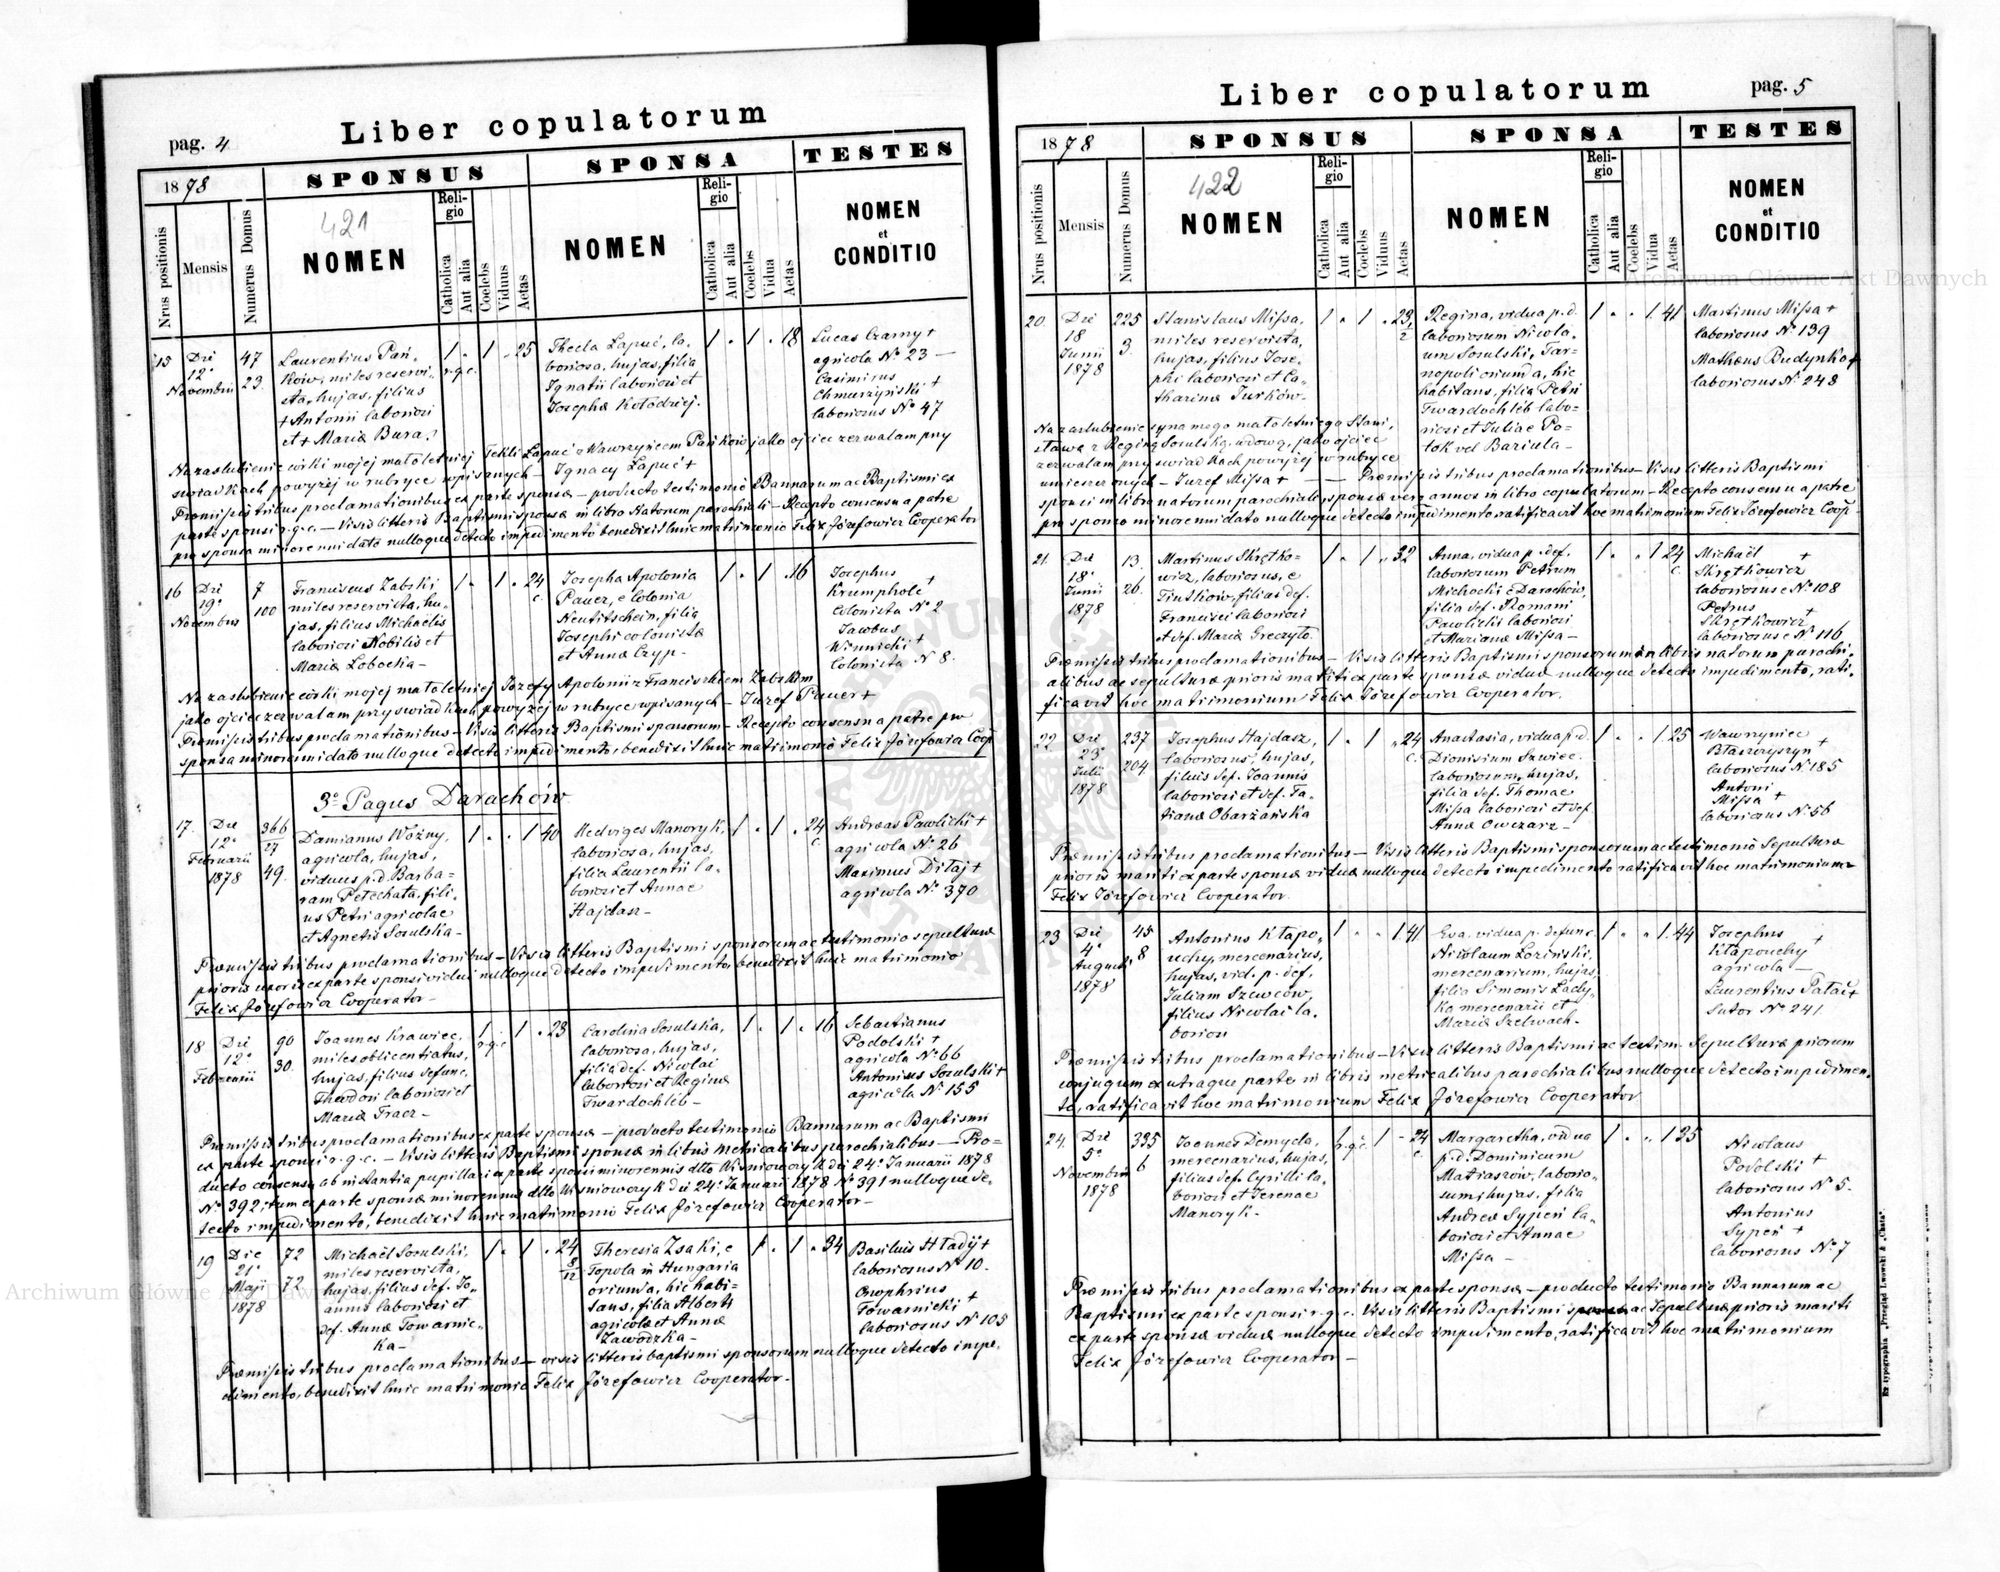 Liber copulatorum
pag. 4
1878
SPONSUS
SPONSA
TESTES
421
Nrus positionis
Mensis
Numerus Domus
NOMEN
Religio
Catholica
Aut alia
Coelebs
Viduus
Aetas
NOMEN
Religio
Catholica
Aut alia
Coelebs
Vidua
Aetas
NOMEN
et
CONDITIO
15
Die
12ª
Novembris
47
23.
Laurentius Pań-
ków, miles reservi-
sta, hujas, filius
+ Antonii laboriosi
et + Mariæ Bura
1 . 1 . 25
r.g.c.
Thecla Łapuć, la-
boriosa, hujas, filia
Ignatii laboriosi et
Josephæ Kołodziej.
1 . 1 . 18
Lucas Czarny +
agricola Nº 23 —
Casimirus
Chmurzyński +
laboriosus Nº 47
Na zaślubienie córki mojej małoletniej Tekli Łapuć z Wawrzyńcem Pańków jako ojciec zezwalam przy
świadkach powyżej w rubryce wpisanych — Ignacy Łapuć +
Præmissis tribus proclamationibus ex parte sponsæ — producto testimonio Bannarum ac Baptismi ex
parte sponsi r.g.c. — Visis litteris Baptismi sponsæ in libro Natorum parochiali — Recepto consensu a patre
pro sponsa minorenni dato nulloque detecto impedimento benedixit huic matrimonio Felix Józefowicz Cooperator
16
Die
19ª
Novembris
7
100
Franciscus Zabski
miles reservista, hu-
jas, filius Michaelis
laboriosi Nobilis et
Mariæ Łobocka —
1 . 1 . 24
c.
Josepha Apolonia
Pauer, e Colonia
Neutitschein, filia
Josephi colonistæ
et Annæ Czyp —
1 . 1 . 16
Josephus
Krumpholc +
Colonista Nº 2
Jacobus
Winnicki +
Colonista Nº 8.
Na zaślubienie córki mojej małoletniej Józefy Apolonii z Franciszkiem Zabskim
jako ojciec zezwalam przy świadkach powyżej w rubryce wpisanych — Józef Pauer +
Præmissis tribus proclamationibus — Visis litteris Baptismi sponsorum — Recepto consensu a patre pro
sponsa minorenni dato nulloque detecto impedimento, benedixit huic matrimonio Felix Józefowicz Coop
3º Pagus Darachów
17.
Die
12ª
Februarii
1878
366
27
49.
Damianus Woźny,
agricola, hujas,
viduus p.d. Barba-
ram Petechata, fili-
us Petri agricolae
et Agnetis Sosulska —
1 . . 1 40
Hedviges Manoryk,
laboriosa, hujas,
filia Laurentii la-
boriosi et Annae
Hajdasz —
1 . 1 . 24
c.
Andreas Pawlicki +
agricola Nº 26
Maximus Diłaj +
agricola Nº 370
Præmissis tribus proclamationibus — Visis litteris Baptismi sponsorum ac testimonio sepulturæ
prioris uxoris ex parte sponsi vidui nulloque detecto impedimento, benedixit huic matrimonio
Felix Józefowicz Cooperator —
18
Die
12ª
Februarii
90
30.
Joannes Krawiec,
miles oblicentiatus,
hujas, filius defunc.
Theodori laboriosi et
Mariæ Tracz —
1 . 1 . 23
r.g.c
Carolina Sosulska,
laboriosa, hujas,
filia def. Nicolai
laboriosi et Reginæ
Twardochleb —
1 . 1 . 16
Sebastianus
Podolski +
agricola Nº 66
Antonius Sosulski +
agricola Nº 155
Præmissis tribus proclamationibus ex parte sponsæ — producto testimonio Bannarum ac Baptismi
ex parte sponsi r.g.c. — Visis litteris Baptismi sponsæ in libris metricalibus parochialibus — Pro-
ducto consensu ab instantia pupillari ex parte sponsi minorennis dtto Wiśniowczyk dei 24ª Januarii 1878
Nº 392, item ex parte sponsæ minorennis dtto Wiśniowczyk dei 24ª Januarii 1878 Nº 391 nulloque de-
tecto impedimento, benedixit huic matrimonio Felix Józefowicz Cooperator —
19
Die
21ª
Maji
1878
72
72
Michaël Sosulski,
miles reservista,
hujas, filius def. Jo-
annis laboriosi et
def. Annæ Towarnic-
ka —
1 . 1 . 24
8/12
Theresia Zsaki, e
Topola in Hungaria
oriunda, hic habi-
tans, filia Alberti
agricolæ et Annæ
Zawodzka —
1 . 1 . 34
Basilius Hładij +
laboriosus Nº 10.
Onophrius
Towarnicki +
laboriosus Nº 105
Præmissis tribus proclamationibus — visis litteris baptismi sponsorum nulloque detecto impe-
dimento, benedixit huic matrimonio Felix Józefowicz Cooperator —
Liber copulatorum
pag. 5
1878
SPONSUS
SPONSA
TESTES
422
Nrus positionis
Mensis
Numerus Domus
NOMEN
Religio
Catholica
Aut alia
Coelebs
Viduus
Aetas
NOMEN
Religio
Catholica
Aut alia
Coelebs
Vidua
Aetas
NOMEN
et
CONDITIO
20
Die
18
Junii
1878
225
3.
Stanislaus Missa,
miles reservista,
hujas, filius Jose-
phi laboriosi et Ca-
tharinæ Turków —
1 . 1 . 23 1/2
Regina, vidua p.d.
laboriosum Nicola-
um Sosulski, Tar-
nopoli oriunda, hic
habitans, filia Petri
Twardochleb labo-
riosi et Juliae Po-
tok vel Bariula —
1 . . 1. 41
Martinus Missa +
laboriosus Nº 139
Mathæus Rudynko +
laboriosus Nº 248
Na zaślubienie syna mego małoletniego Stani-
sława z Reginą Sosulską, wdową, jako ojciec
zezwalam przy świadkach powyżej w rubryce
umieszczonych — Józef Missa + — Præmissis tribus proclamationibus — Visis litteris Baptismi
sponsi in libro natorum parochiali, sponsæ vero annos in libro copulatorum — Recepto consensu a patre
pro sponso minorenni dato nulloque detecto impedimento, ratificavit hoc matrimonium Felix Józefowicz Coop
21.
Die
18ª
Junii
1878
13.
26.
Martinus Skrętko-
wicz, laboriosus, e
Tiutków, filius def.
Francisci laboriosi
et def. Mariæ Greczyło.
1 . 1 . 32
Anna, vidua p. def.
laboriosum Petrum
Michocki e Darachów,
filia def. Romani
Pawlicki laboriosi
et Marianæ Missa —
1 . . 1 24
c.
Michaël +
Skrętkowicz
laboriosus e Nº 108
Petrus
Skrętkowicz +
laboriosus e Nº 116
Præmissis tribus proclamationibus — Visis litteris Baptismi sponsorum in libris natorum parochi-
alibus ac sepulturæ prioris mariti ex parte sponsæ viduæ nulloque detecto impedimento, rati-
ficavit hoc matrimonium Felix Józefowicz Cooperator.
22
Die
23ª
Julii
1878
237
204
Josephus Hajdasz,
laboriosus, hujas,
filius def. Joannis
laboriosi et def. Ta-
tianæ Obarzańska
1 . 1 . 24
c.
Anastasia, vidua p.d.
Dionisium Szwiec
laboriosum, hujas,
filia def. Thomae
Missa laboriosi et def.
Annæ Owczarz —
1 . . 1. 25
Wawryniec
Błaszczyszyn +
laboriosus Nº 185
Antoni
Missa +
laboriosus Nº 56
Præmissis tribus proclamationibus — Visis litteris Baptismi sponsorum ac testimonio Sepulturæ
prioris mariti ex parte sponsæ viduæ nulloque detecto impedimento ratificavit hoc matrimonium
Felix Józefowicz Cooperator.
23
Die
4ª
Augusti
1878
45
8
Antonius Kłapo-
uchy, mercenarius,
hujas, vid. p. def.
Juliam Szewców,
filius Nicolai la-
boriosi
1 . . 1. 41
Eva, vidua p. defunc.
Nicolaum Łoziński,
mercenarium, hujas,
filia Simonis Łady-
ka mercenarii et
Mariæ Szelwach —
1 . . 1. 44
Josephus
Kłapouchy +
agricola —
Laurentius Patac +
Sutor Nº 241
Præmissis tribus proclamationibus — Visis litteris Baptismi ac testim. Sepulturæ priorum
conjugum ex utraque parte in libris metricalibus parochialibus nulloque detecto impedimen-
to, ratificavit hoc matrimonium Felix Józefowicz Cooperator
24.
Die
5ª
Novembris
1878
335
6
Joannes Demycla,
mercenarius, hujas,
filius def. Cyrilli la-
boriosi et Terenae
Manoryk —
r.g.c. 1 — 24
c.
Margaretha, vidua
p.d. Dominicum
Matiaszów, laborio-
sum, hujas, filia
Andreæ Sypeń la-
boriosi et Annae
Missa —
1 . . 1 35
Nicolaus
Podolski +
laboriosus Nº 5.
Antonius
Sypeń +
laboriosus Nº 7
Præmissis tribus proclamationibus ex parte sponsæ — producto testimonio Bannarum ac
Baptismi ex parte sponsi r.g.c. Visis litteris Baptismi ac Sepulturæ prioris mariti
ex parte sponsæ viduæ nulloque detecto impedimento, ratificavit hoc matrimonium
Felix Józefowicz Cooperator —
Ex typographia „Przegląd Lwowski & „Chata".
Archiwum Główne Akt Dawnych
Archiwum Główne Akt Dawnych